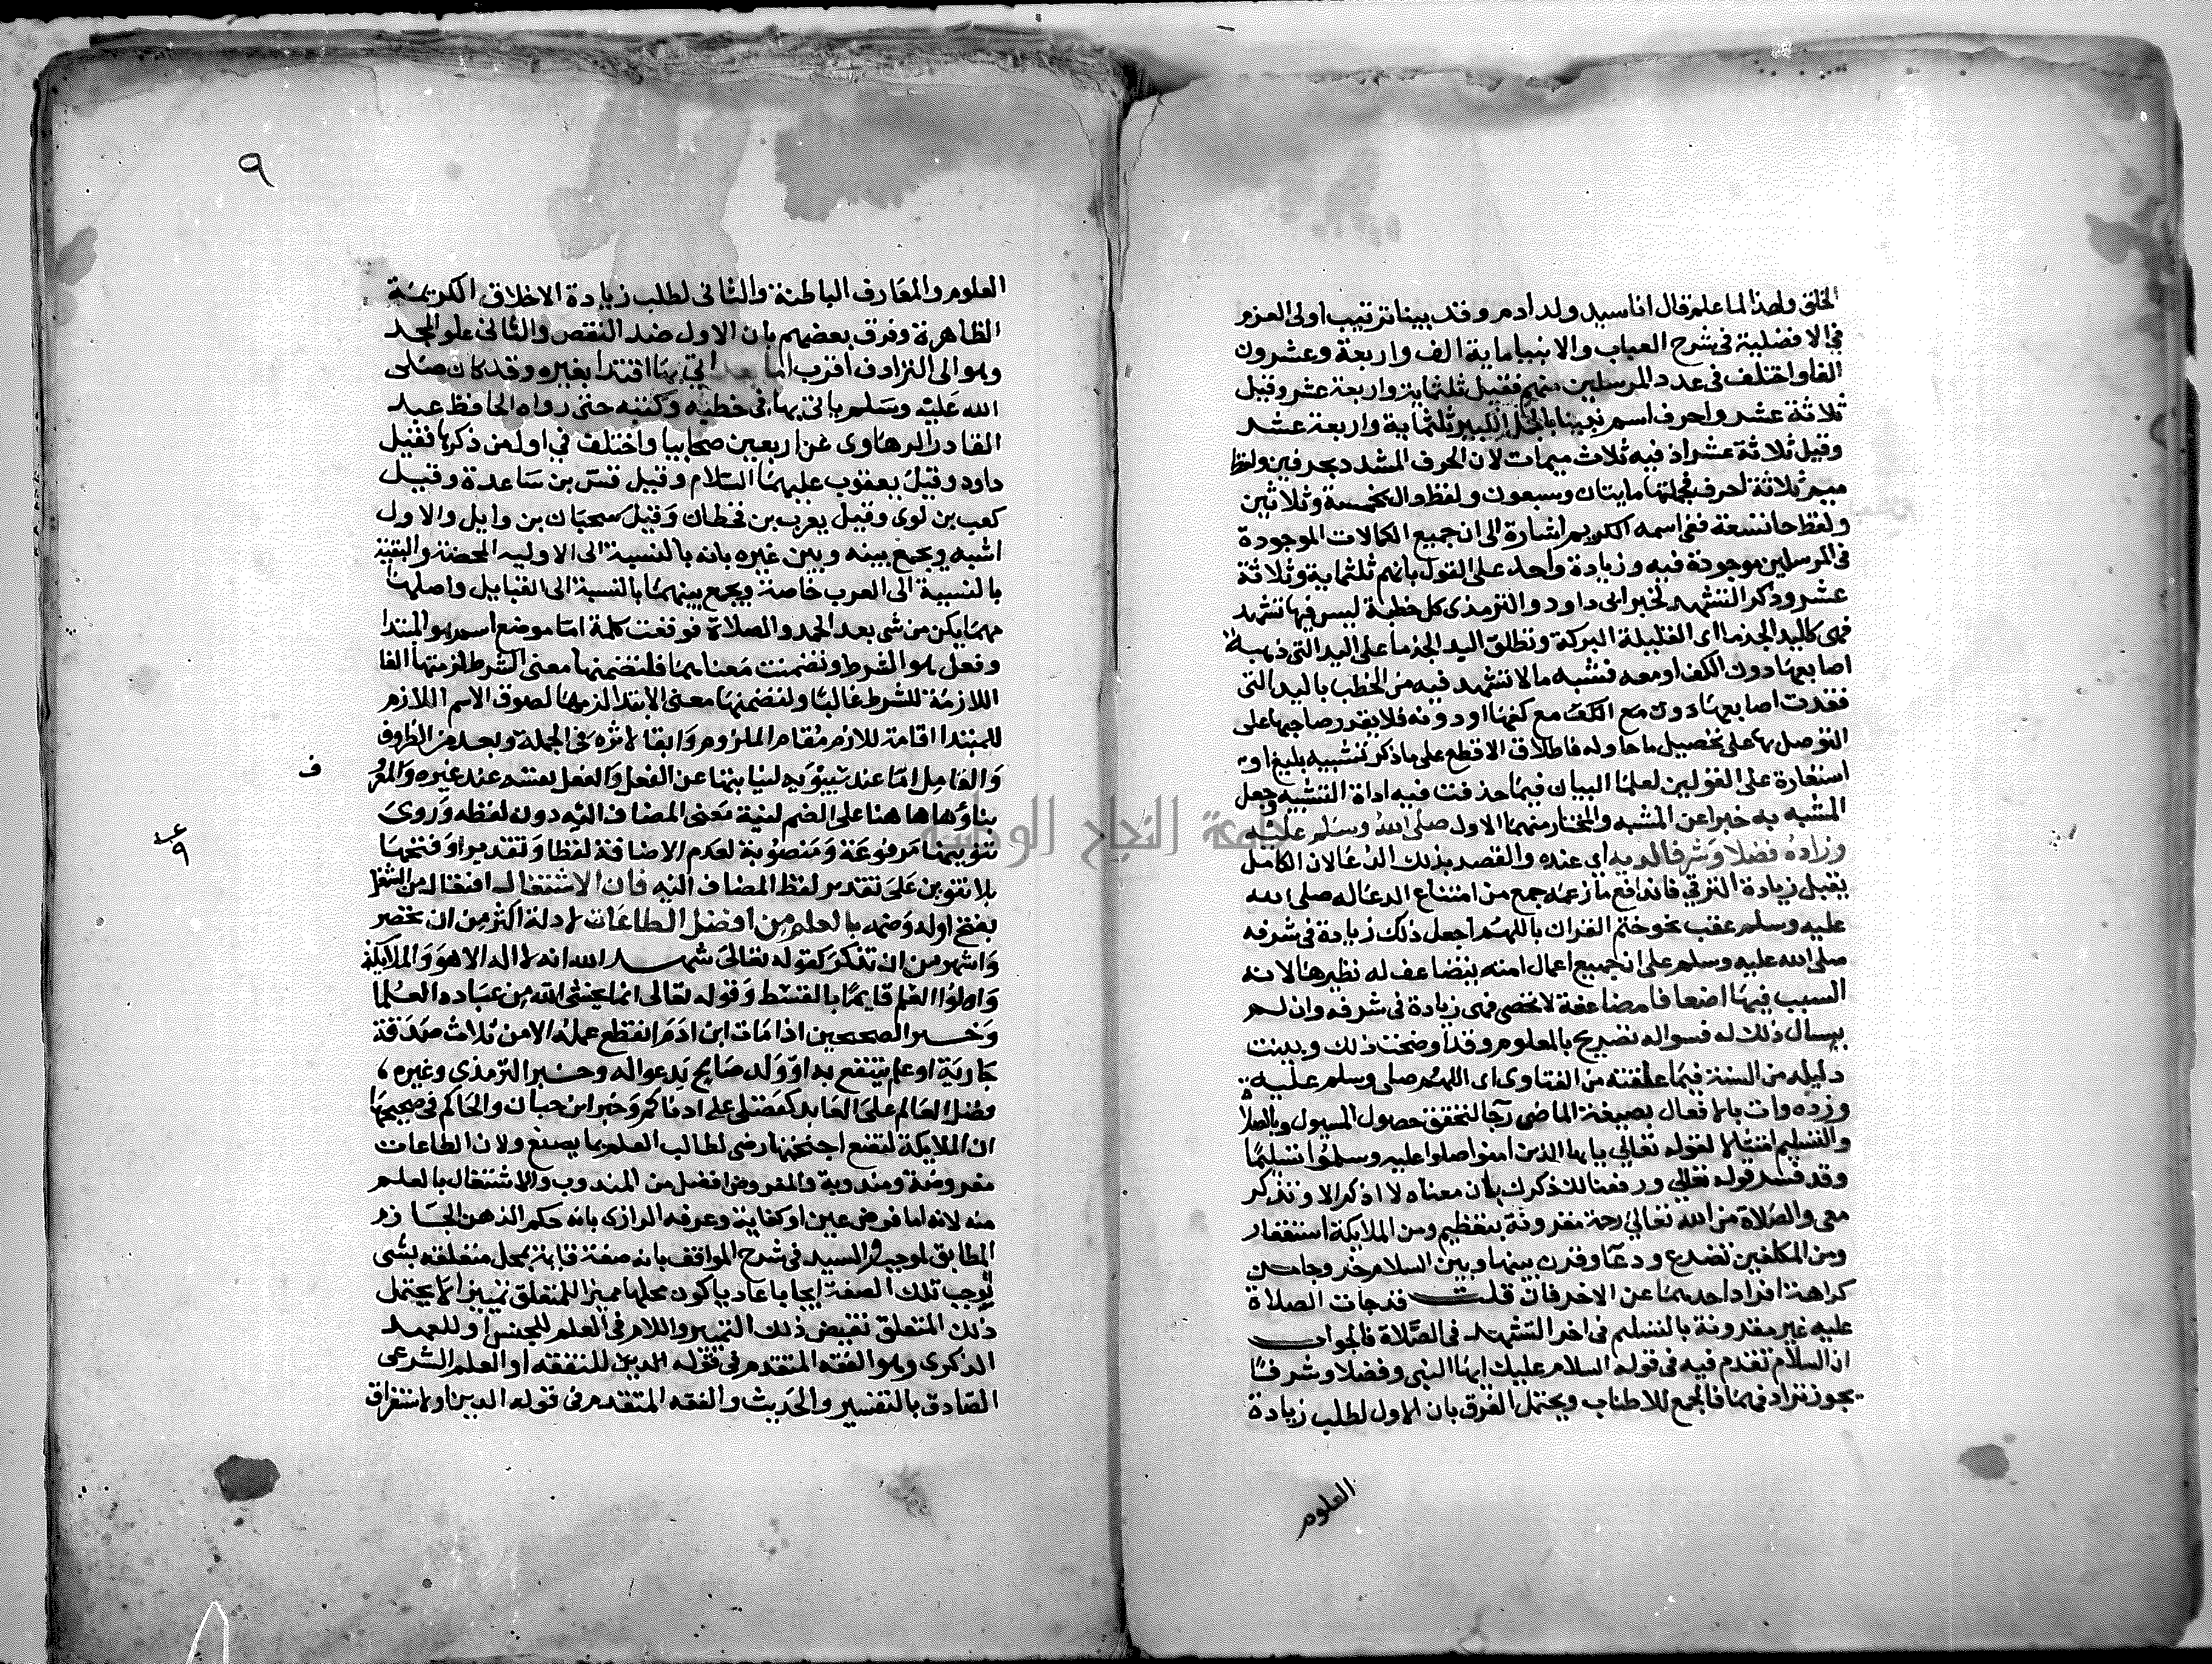 الخلق ولهذا لما علم قال انا سيد ولد ادم وقد بينا ترتيب اولى العزم
فى الافضلية فى شرح العباب والانبيا ماية الف واربعة وعشرون
الفا واختلف فى عدد المرسلين منهم فقيل ثلثماية واربعة عشر وقيل
ثلاثة عشر واحرف اسم نبينا بالجمل الكبير ثلثماية واربعة عشر
وقيل ثلاثة عشر اذ فيه ثلاث ميمات لان الحرف المشدد بحرفين ولفظ
ميم ثلاثة احرف فجملتها مايتان وسبعون ولفظ دال بخمسة وثلاثين
ولفظ حا تسعة ففى اسمه الكريم اشارة الى ان جميع الكمالات الموجودة
فى المرسلين موجودة فيه وزيادة واحد على القول بانهم ثلثماية وثلاثة
عشر وذكر التشهد لخبر ابى داود والترمذى كل خطبة ليس فيها تشهد
فهى كاليد الجذما اى القليلة البركة وتطلق اليد الجذما على اليد التى ذهبت
اصابعها دون الكف او معه فشبه ما لا تشهد فيه من الخطب باليد التى
فقدت اصابعها دون مع الكف مع كفها او دونه فلا يقدر صاحبها على
التوصل بها على تحصيل ما حاوله فاطلاق الاقطع على ما ذكر تشبيه بليغ او
استعارة على القولين لعلما البيان فيما حذفت فيه اداة التشبيه وجعل
المشبه به خبرا عن المشبه والمختار منهما الاول صلى الله وسلم عليه
وزاده فضلا وشرفا لديه اى عنده والقصد بذلك الدعا لان الكامل
يقبل زيادة الترقى فاندفع ما زعمه جمع من امتناع الدعا له صلى الله
عليه وسلم عقب نحو ختم القران باللهم اجعل ذلك زيادة فى شرفه
صلى الله عليه وسلم على ان جميع اعمال امته يتضاعف له نظيرها لانه
السبب فيها اضعافا مضاعفة لا تحصى فهى زيادة فى شرفه وان لم
يسال ذلك له فسواله تصريح بالمعلوم وقد اوضحت ذلك وبينت
دليله من السنة فيما علقته من الفتاوى اى اللهم صلى وسلم عليه
وزده وات بالافعال بصيغة الماضى رجا لتحقق حصول المسيول وبالصلاة
والتسليم امتثالا لقوله تعالى يا يها الذين امنوا صلوا عليه وسلموا تسليما
وقد فسر قوله تعالى ورفعنا لك ذكرك بان معناه لا اذكر الا وتذكر
معى والصلاة من الله تعالى رحمة مقرونة بتعظيم ومن الملايكة استغفار
ومن المكلفين تضرع ودعا وقرن بينها وبين السلام خروجا من
كراهة افراد احدهما عن الاخر فان قلت فقد جات الصلاة
عليه غير مقرونة بالتسلم فى اخر التشهد فى الصلاة فالجواب
ان السلام تقدم فيه فى قوله السلام عليك ايها النبى وفضلا وشرفا
يجوز ترادفهما فالجمع للاطناب ويحتمل الفرق بان الاول لطلب زيادة
العلوم
٩
العلوم والمعارف الباطنة والثانى لطلب زيادة الاخلاق الكريمة
الظاهرة وفرق بعضهم بان الاول ضد النقص والثانى علو المجد
وهو الى الترادف اقرب اما بعد اتى بها اقتدا بغيره وقد كان صلى
الله عليه وسلم ياتى بها فى خطبه وكتبه حتى رواه الحافظ عبد
القادر الرهاوى عن اربعين صحابيا واختلف فى اول من ذكرها فقيل
داود وقيل يعقوب عليهما السلام وقيل قس بن ساعدة وقيل
كعب بن لوى وقيل يعرب بن قحطان وقيل سحبان بن وايل والاول
اشبه ويجمع بينه وبين غيره بانه بالنسبة الى الاولية المحضة والبقية
بالنسبة الى العرب خاصة ويجمع بينهما بالنسبة الى القبايل واصلها
مهما يكن من شى بعد الحمد والصلاة فوقعت كلمة اما موضع اسم هو المبتدا
وفعل هو الشرط وتضمنت معناهما فلتضمنها معنى الشرط لزمتها الفا
اللازمة للشرط غالبا ولتضمنها معنى الابتدا لزمها لصوق الاسم اللازم
للمبتدا اقامة للازم مقام الملزوم وابقا لاثره فى الجملة وبعد من الظروف
والعامل اما عند سيبويه لنيابتها عن الفعل والفعل نفسه عند غيره والمعر
ف
بناوها هاهنا على الضم لنية معنى المضاف اليه دون لفظه وروى
عـ
٩
تنوينها مرفوعة ومنصوبة لعدم الاضافة لفظا وتقديرا وفتحها
بلا تنوين على تقدير لفظ المضاف اليه فان الاشتغال افتعال من الشغل
بفتح اوله وضمه بالعلم من افضل الطاعات لادلة اكثر من ان تحصر
واشهر من ان تذكر كقوله تعالى شهد الله انه لا اله الا هو والملايكة
واولوا العلم قايما بالقسط وقوله تعالى انما يخشى الله من عباده العلما
وخبر الصحيحين اذا مات ابن ادم انقطع عمله الا من ثلاث صدقة
جارية او علم ينتفع به او ولد صالح يدعوا له وخبر الترمذى وغيره
فضل العالم على العابد كفضلى على ادناكم وخبر ابن حبان والحاكم فى صحيحهما
ان الملايكة لتضع اجنحتها رضى لطالب العلم بما يصنع ولان الطاعات
مفروضة ومندوبة والمفروض افضل من المندوب والاشتغال بالعلم
منه لانه اما فرض عين او كفاية وعرفه الرازى بانه حكم الذهن الجازم
المطابق لموجب والسيد فى شرح المواقف بانه صفة قايمة بمحل متعلقه بشى
توجب تلك الصفة ايجابا عاديا كون محلها مميزا للمتعلق تمييزا لا يحتمل
ذلك المتعلق نقيض ذلك التمييز واللام فى العلم للجنس او للعهد
الذكرى وهو الفقه المتقدم فى قوله الدين للتفقه او العلم الشرعى
الصادق بالتفسير والحديث والفقه المتقدم فى قوله الدين او لاستغراق
جامعة النجاح الوطنية